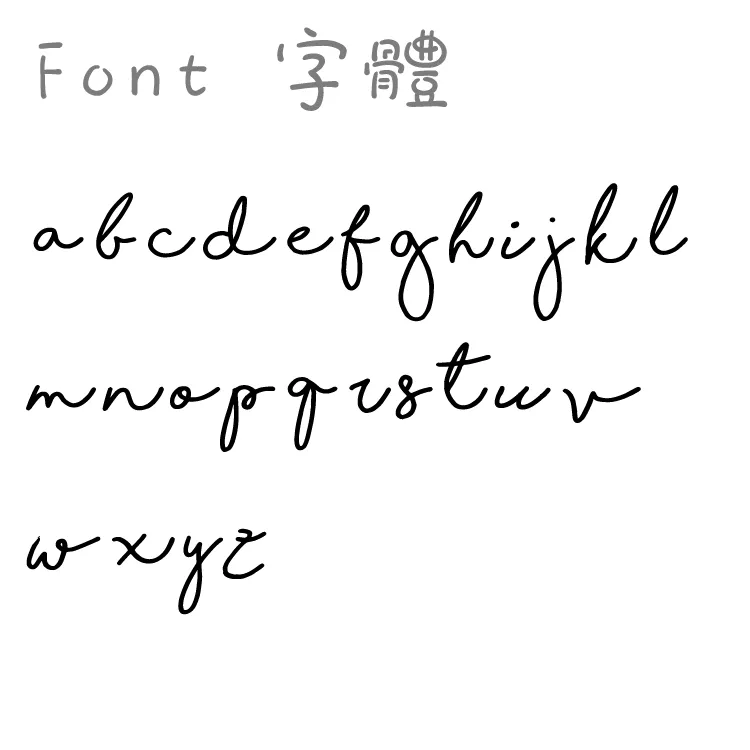 Font 字體
abcdefghijkl
mnopqrstuv
wxyz